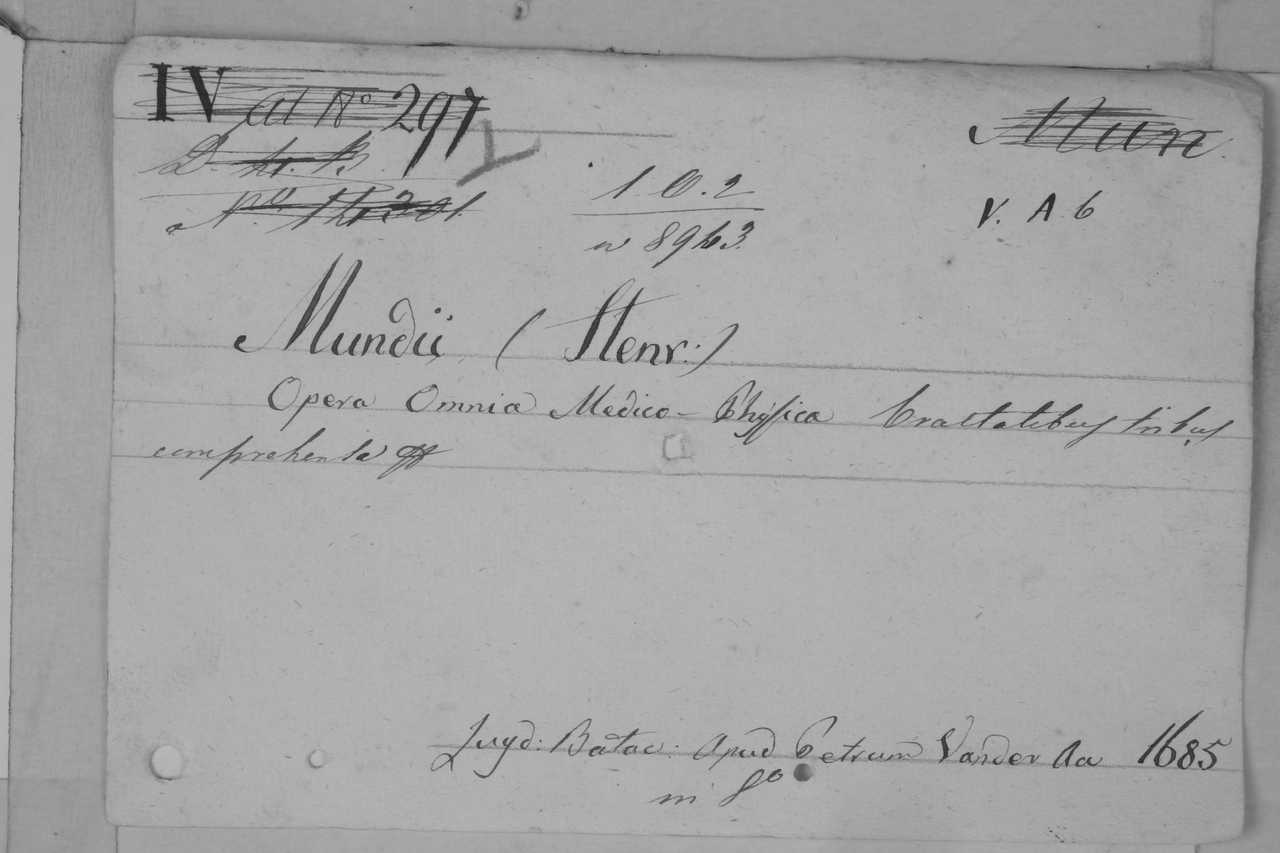 IV ad N° 297
Mun
1 0.2
V. A 6
Mundii (Henr:)
Opera Omnia Medico-Physica tractatibus tribus
comprehensa
Lugd: Batav: Apud Petrum Vander Aa 1685
in 8°